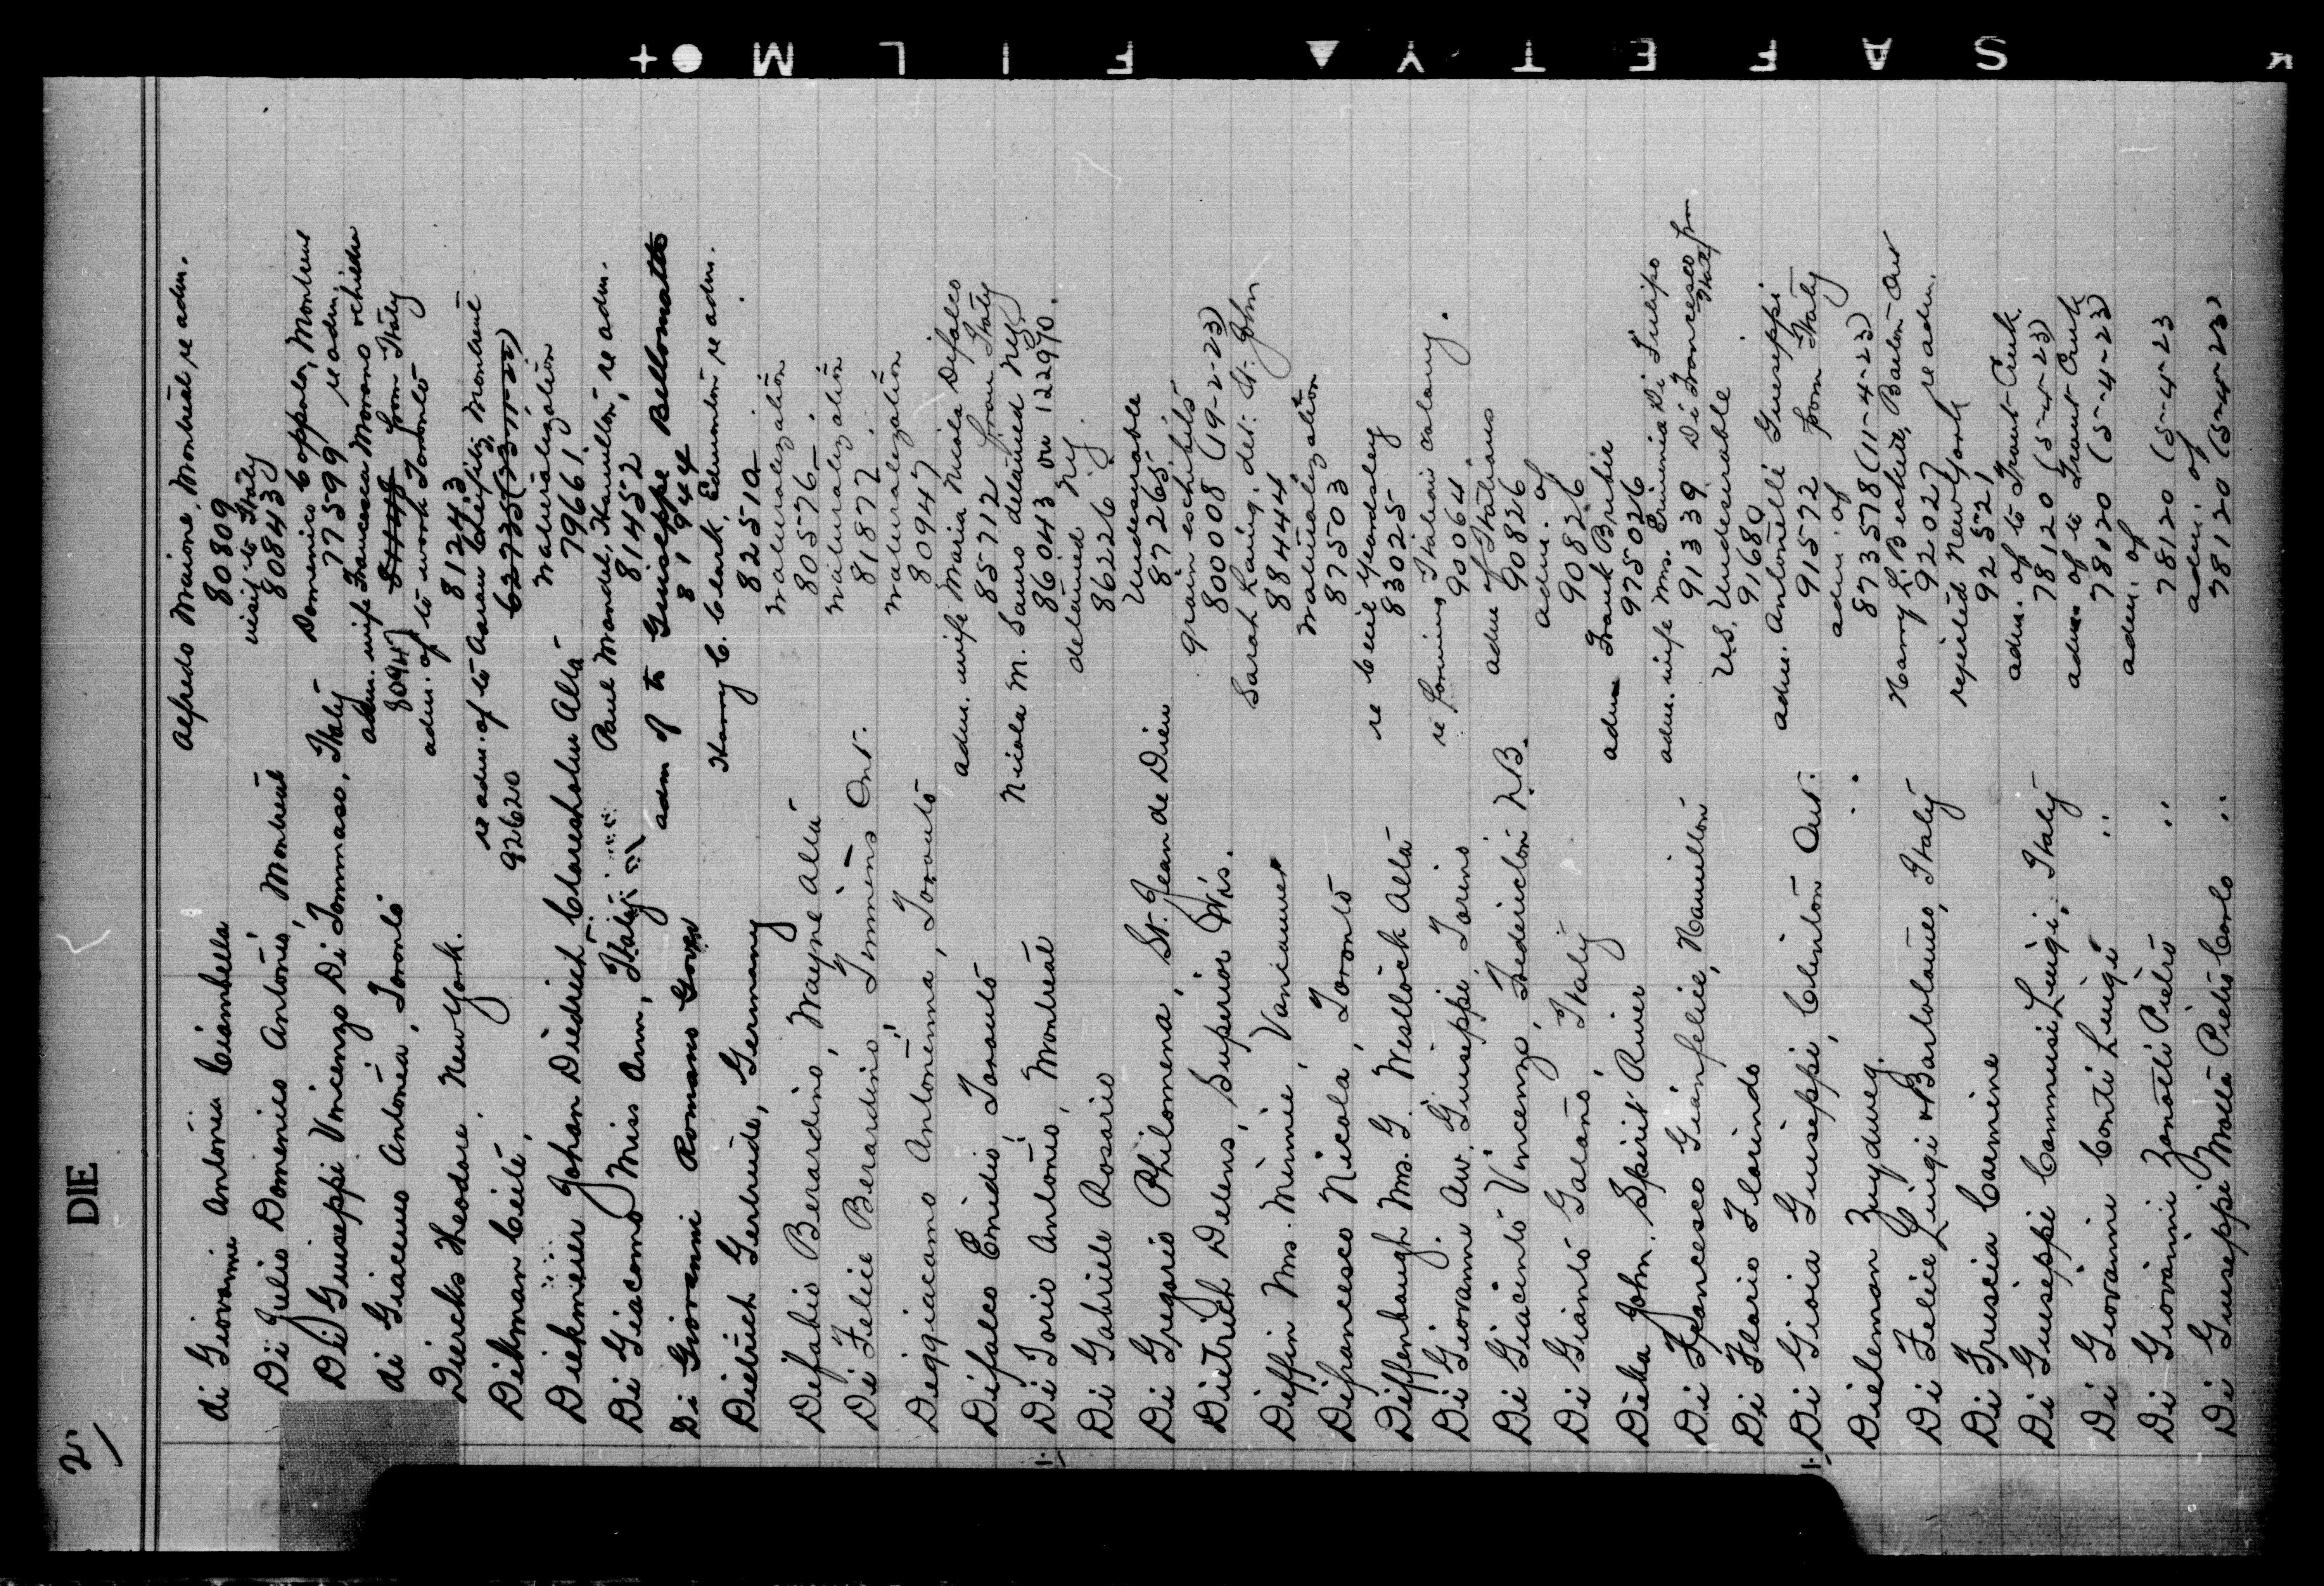 21
DIE
Di Giovanni Antonia Ciambella Alfredo Maione, Montreal, re adm.
80809
Di Julio Domenico Antonio, Montreal visit to Italy
808430
Di Guiseppi Vincenzo Di Tommaso, Italy Domenico Coppola, Montreal
77599 re adm.
Di Giacomo Antonia, Toronto adm. wife Francesca Morano
80947 from Italy
Diercks Theodore, New York. adm. of to work Toronto
81243
Diekman Cicile, re adm. of to Aaron Montreal
92620 62735
Diekmeier Johan Diedrich Claresholm Alta naturalization
79661
Di Giacomo Miss Ann, Italy Paul Mandel, Hamilton, re adm.
81452
Di Giovanni Romano adm of to Guiseppe Bellomatto
81944
Dietrich Gertrude, Germany Harry C. Clark, Edmonton re adm.
82510
Difabio Berardino, Wayne Alta naturalization
80576
Di Felice Berardino, Timmins Ont. naturalization
81877
Digqiacomo Antonenna, Toronto naturalization
80947
Difalco Emidio, Toronto adm. wife Maria Nicola Difalco
85712 from Italy
Di Iorio Antonio, Montreal Nicola M. Sauro detained NY
86043 on 122970.
Di Gabriele Rosario detained NY.
86226
Di Gregorio Philomena, St. Jean de Dieu Undesirable
87265
Dietrich Delens, Superior Wis. grain exhibits
800008 (19-2-23)
Dieffin Mrs. Minnie, Vancouver Sarah Laing, det: St. John
88444
Difrancesco Nicola, Toronto naturalization
87503
Dieffenbaugh Mrs. G. Westlock Alta re Yeardsley
83025
Di Giovanni Av. Guiseppi, Torino re forming Italian colony.
90064
Di Giacinto Vincenzo, Fredericton N.B. adm of Italians
90826
Di Gianto Galano, Italy adm. of
90826
Dieka John. Spirit River adm Frank Brubie
975026
Di Francesco Gianfelice, Hamilton adm. wife Mrs. Erminia Di Fulipo
91339 Di Francesco from Italy
Di Ilario Florindo U.S. Undesirable
91680
Di Gioia Guiseppi, Clinton Ont. adm. Antonelli Gueseppi
91572 from Italy
Dieleman Zuydweg. " adm. of
873578 (11-4-23)
Di Felice Luigi & Bartolomeo, Italy Harry L. Beskin, Barton Ont
92027 re adm.
Di Fruscia Carmine rejected New York
92521
Di Guiseppi Cammisi Luigi, Italy adm. of to Trout Creek
78120 (5-4-23)
Di Giovanni Conti Luigi " adm of to Trout Creek
78120 (5-4-23)
Di Giovanni Zanotti Pietro " adm. of
78120 (5-4-23
Di Guiseppi Molla Pietro Carlo " adm. of
78120 (5-4-23)
SAFETY FILM